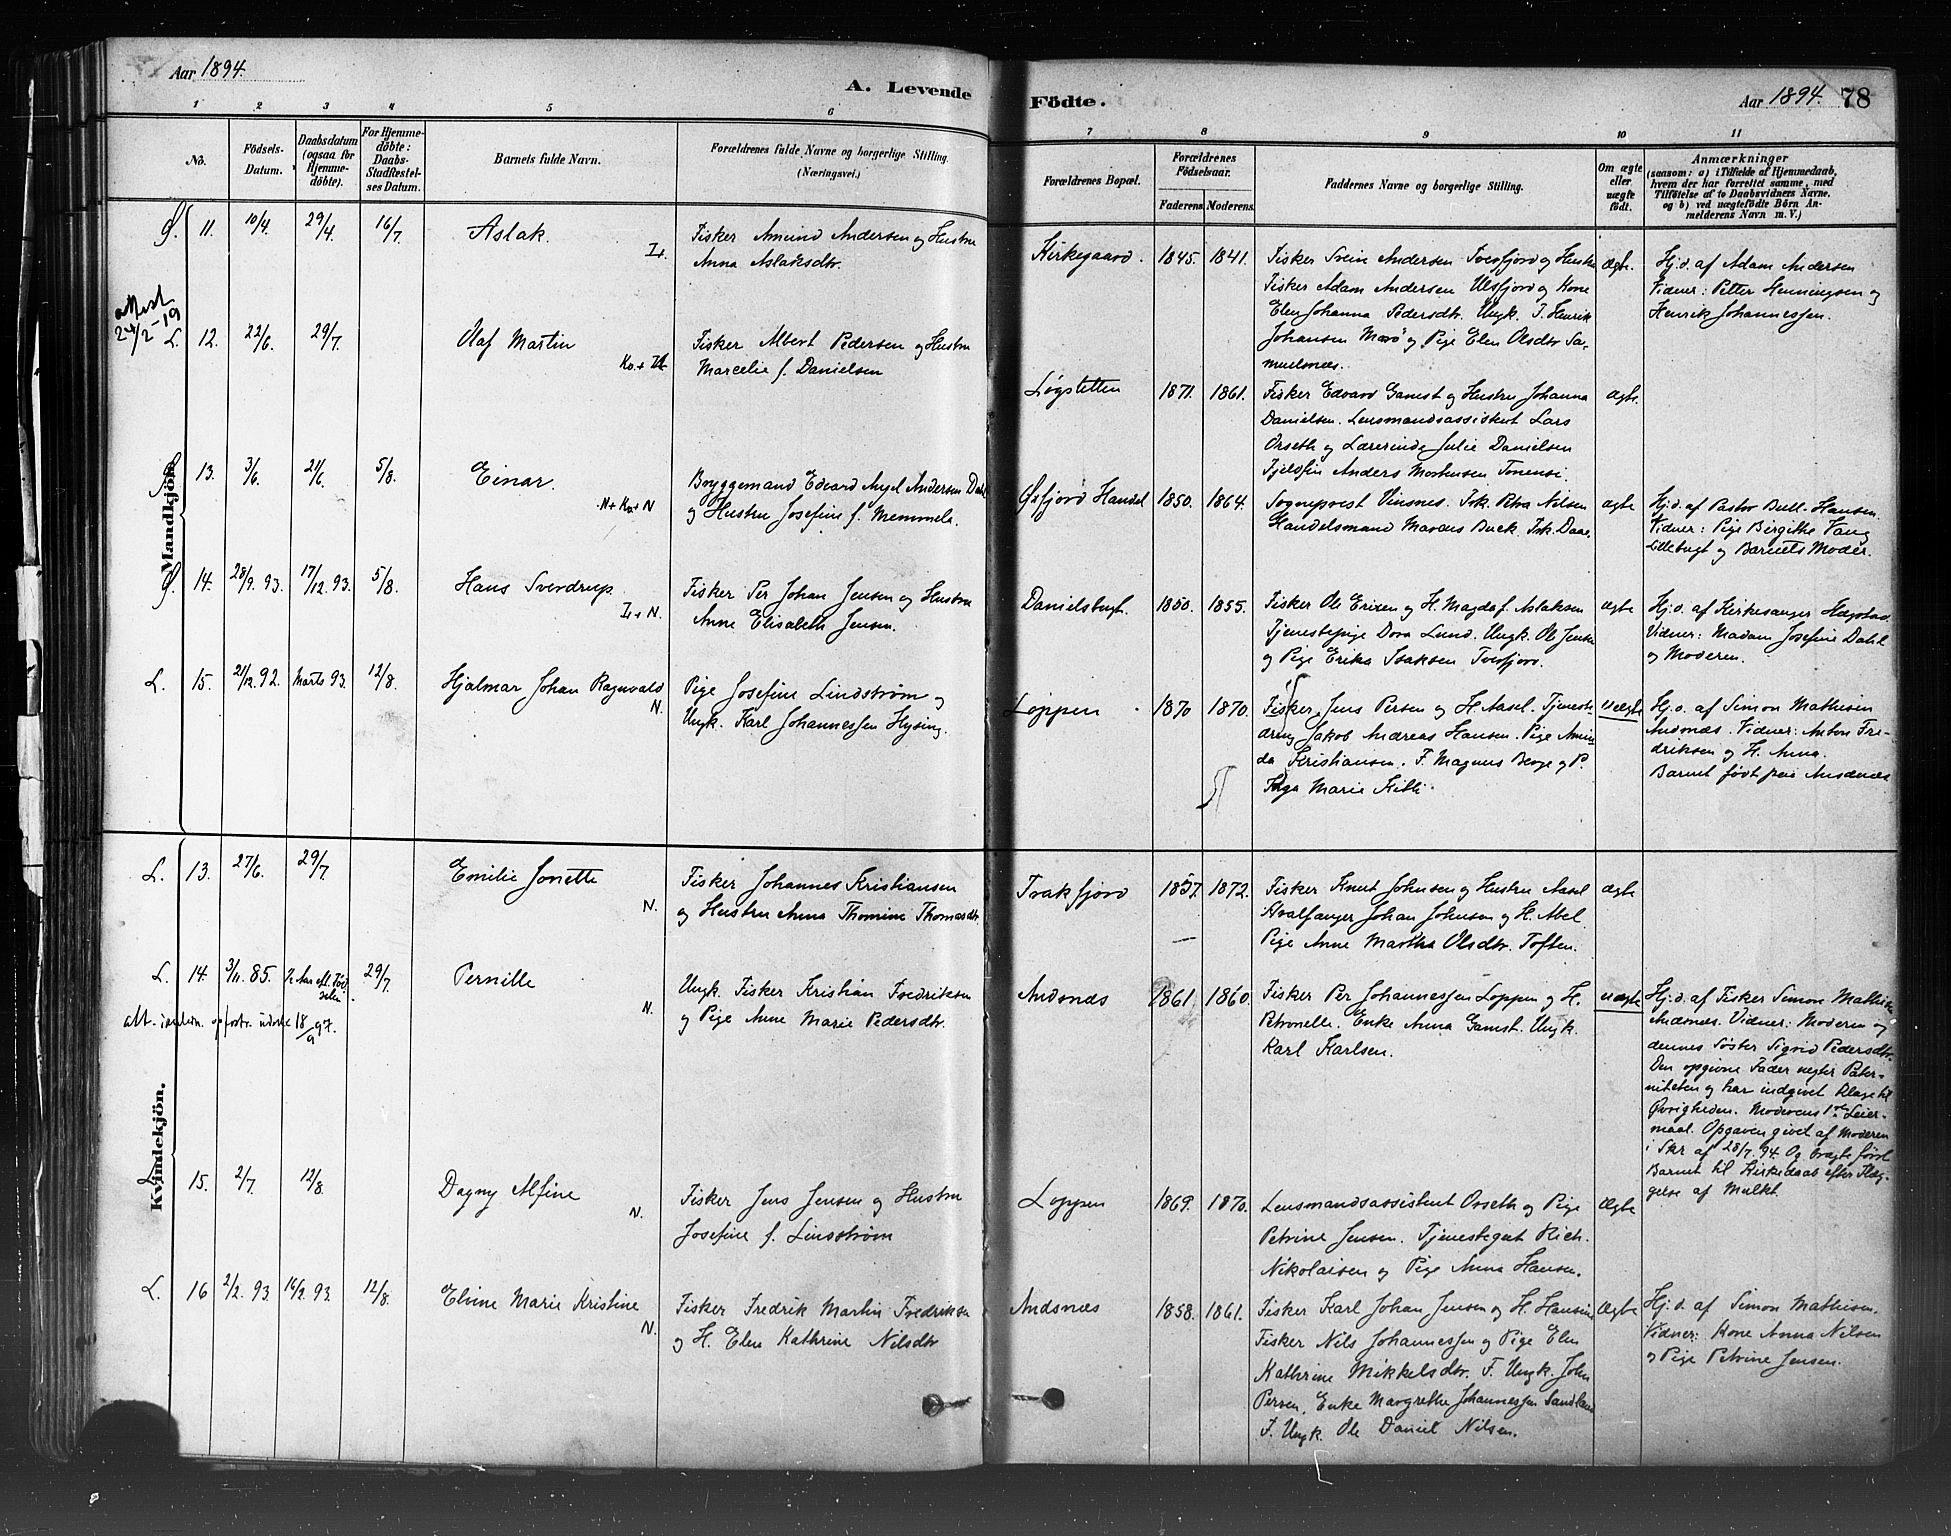 Aar 1894.
A. Levende
Födte.
Aar 1894. 78
1 2 3 4 5 6 7 8 9 10 11
No.
Födsels-
Datum.
Daabsdatum
(ogsaa for
Hjemme-
döbte).
For Hjemme-
döbte:
Daabs-
Stadfæstel-
ses Datum.
Barnets fulde Navn.
Forældrenes fulde Navne og borgerlige Stilling.
(Næringsvei.)
Forældrenes Bopæl.
Forældrenes
Födselsaar.
Faderens. Moderens.
Faddernes Navne og borgerlige Stilling.
Om ægte
eller
uægte
födt.
Anmærkninger
(saasom: a) i Tilfælde af Hjemmedaab,
hvem der har forrettet samme, med
Tilföielse af to Daabsvidners Navne,
og b) ved uægtefödte Börn An-
melderens Navn m. V.)
Mandkjön.
Ø. 11. 10/4. 29/4 16/7 Aslak.
Fisker Amund Andersen og Hustru
Anna Aslaksdtr.
Kirkegaard. 1845. 1841.
Fisker Svein Andersen Tverfjord og Hustru
Fisker Adam Andersen Ulsfjord og Kone
Elen Johanna Pedersdtr. Ungk. J. Henrik
Johansen og Pige Elen Olsdtr Sa-
muelsnes.
Ægte.
Hj.d. af Adam Andersen
Vidner: Petter Henningsen og
Henrik Johannessen.
attest
24/2-19
L. 12. 22/6. 29/7. Olaf Martin
Fisker Albert Pedersen og Hustru
Marcelie f. Danielsen
Løgstetten 1871. 1861.
Fisker Edvard Gamst og Hustru Johanna
Danielsen. Lensmandsassistent Lars
Orseth og Lærerinde Julie Danielsen
Anders Mortensen
ægte.
13. 3/6. 21/6 5/8 Einar.
N+Kv+N
Byggemand Edvard Angel Andersen Dahl
og Hustru Josefine f. Memmela.
Øxfjord Handel 1850. 1864.
Sognepræst Vinsnes. Frk. Petra Nilsen
Handelsmand Marcus Buck. Frk. Daae.
ægte
Hj.d. af Pastor Bull-Hansen.
Vidner: Pige Birgithe Vang
Lillebugt og Barnets Moder.
Ø. 14. 28/9. 93. 17/12. 93. 5/8. Hans Sverdrup.
Fisker Per Johan Jensen og Hustru
Anne Elisabeth Jensen.
Danielsbugt. 1850. 1855.
Fisker Ole Erixen og H. Magda f. Aslaksen
Tjenestepige Dora Lund. Ungk. Ole Jensen
og Pige Erika Isaksen Tverfjord.
ægte
Hj.d. af Kirkesanger Hegstad.
Vidner: Madam Josefine Dahl
og Moderen.
L. 15. 21/12. 92. Marts 93. 12/8. Hjalmar Johan Ragnvald
N.
Pige Josefine Lindstrøm og
Ungk. Karl Johannessen Hysing.
Loppen 1870 1870.
Fisker Jens Persen og H. Aasel. Tjeneste-
dreng Jakob Andreas Hansen. Pige Amun-
da Kristiansen. F. Magnus Berge og P.
Inga Marie Kitti.
uægte
Hj.d. af Simon Mathisen
Andsnæs. Vidner: Anton Fre-
driksen og H. Anna.
Barnet født paa Andsnæs
Kvindekjön.
L. 13. 27/6. 29/7 Emilie Jonette
N.
Fisker Johannes Kristiansen
og Hustru Anna Thomine Thomasdtr.
Trakfjord 1857. 1872.
Fisker Knut Johnsen og Hustru Aasel
Hvalfanger Johan Johnsen og H. Abel
Pige Anne Martha Olsdtr. Toften.
ægte
L. 14. 3/11. 85. 29/7. Pernille
N.
18/9 97.
Ungk. Fisker Kristian Fredriksen
og Pige Anne Marie Pedersdtr.
Andsnæs 1861. 1860.
Fisker Per Johannessen Loppen og H.
Petronelle. Enke Anna Gamst. Ungk.
Karl Karlsen.
uægte
Hj.d. af Fisker Simon Mathisen
Andsnes. Vidner: Moderen og
dennes Søster Sigrid Pedersdtr.
Den opgivne Fader negter Pater-
niteten og har indgivet Klage til
Øvrigheden. Moderens 1ste Leier-
maal. Opgaven givet af Moderen
i Skr af 28/7. 94. Og bragte først
Barnet til Kirkedaab efter Ilæg-
gelse af Mulkt.
L. 15. 2/7. 12/8. Dagny Alfine
N.
Fisker Jens Jensen og Hustru
Josefine f. Lindstrøm
Loppen 1869. 1870.
Lensmandsassistent Orseth og Pige
Petrine Jensen. Tjenestegut Rich.
Nikolaisen og Pige Anna Hansen.
Ægte
L. 16 2/2. 93 16/2. 93. 12/8. Elvine Marie Kristine
N.
Fisker Fredrik Martin Fredriksen
og H. Elen Kathrine Nilsdtr
Andsnæs 1858. 1861.
Fisker Karl Johan Jensen og H. Hansine
Fisker Nils Johannessen og Pige Elen
Kathrine Mikkelsdtr. F. Ungk. John
Persen. Enke Margrethe Johannessen Sandland
F. Ungk. Ole Daniel Nilsen.
Ægte
Hj.d. af Simon Mathisen.
Vidner: Kone Anna Nilsen
og Pige Petrine Jensen.